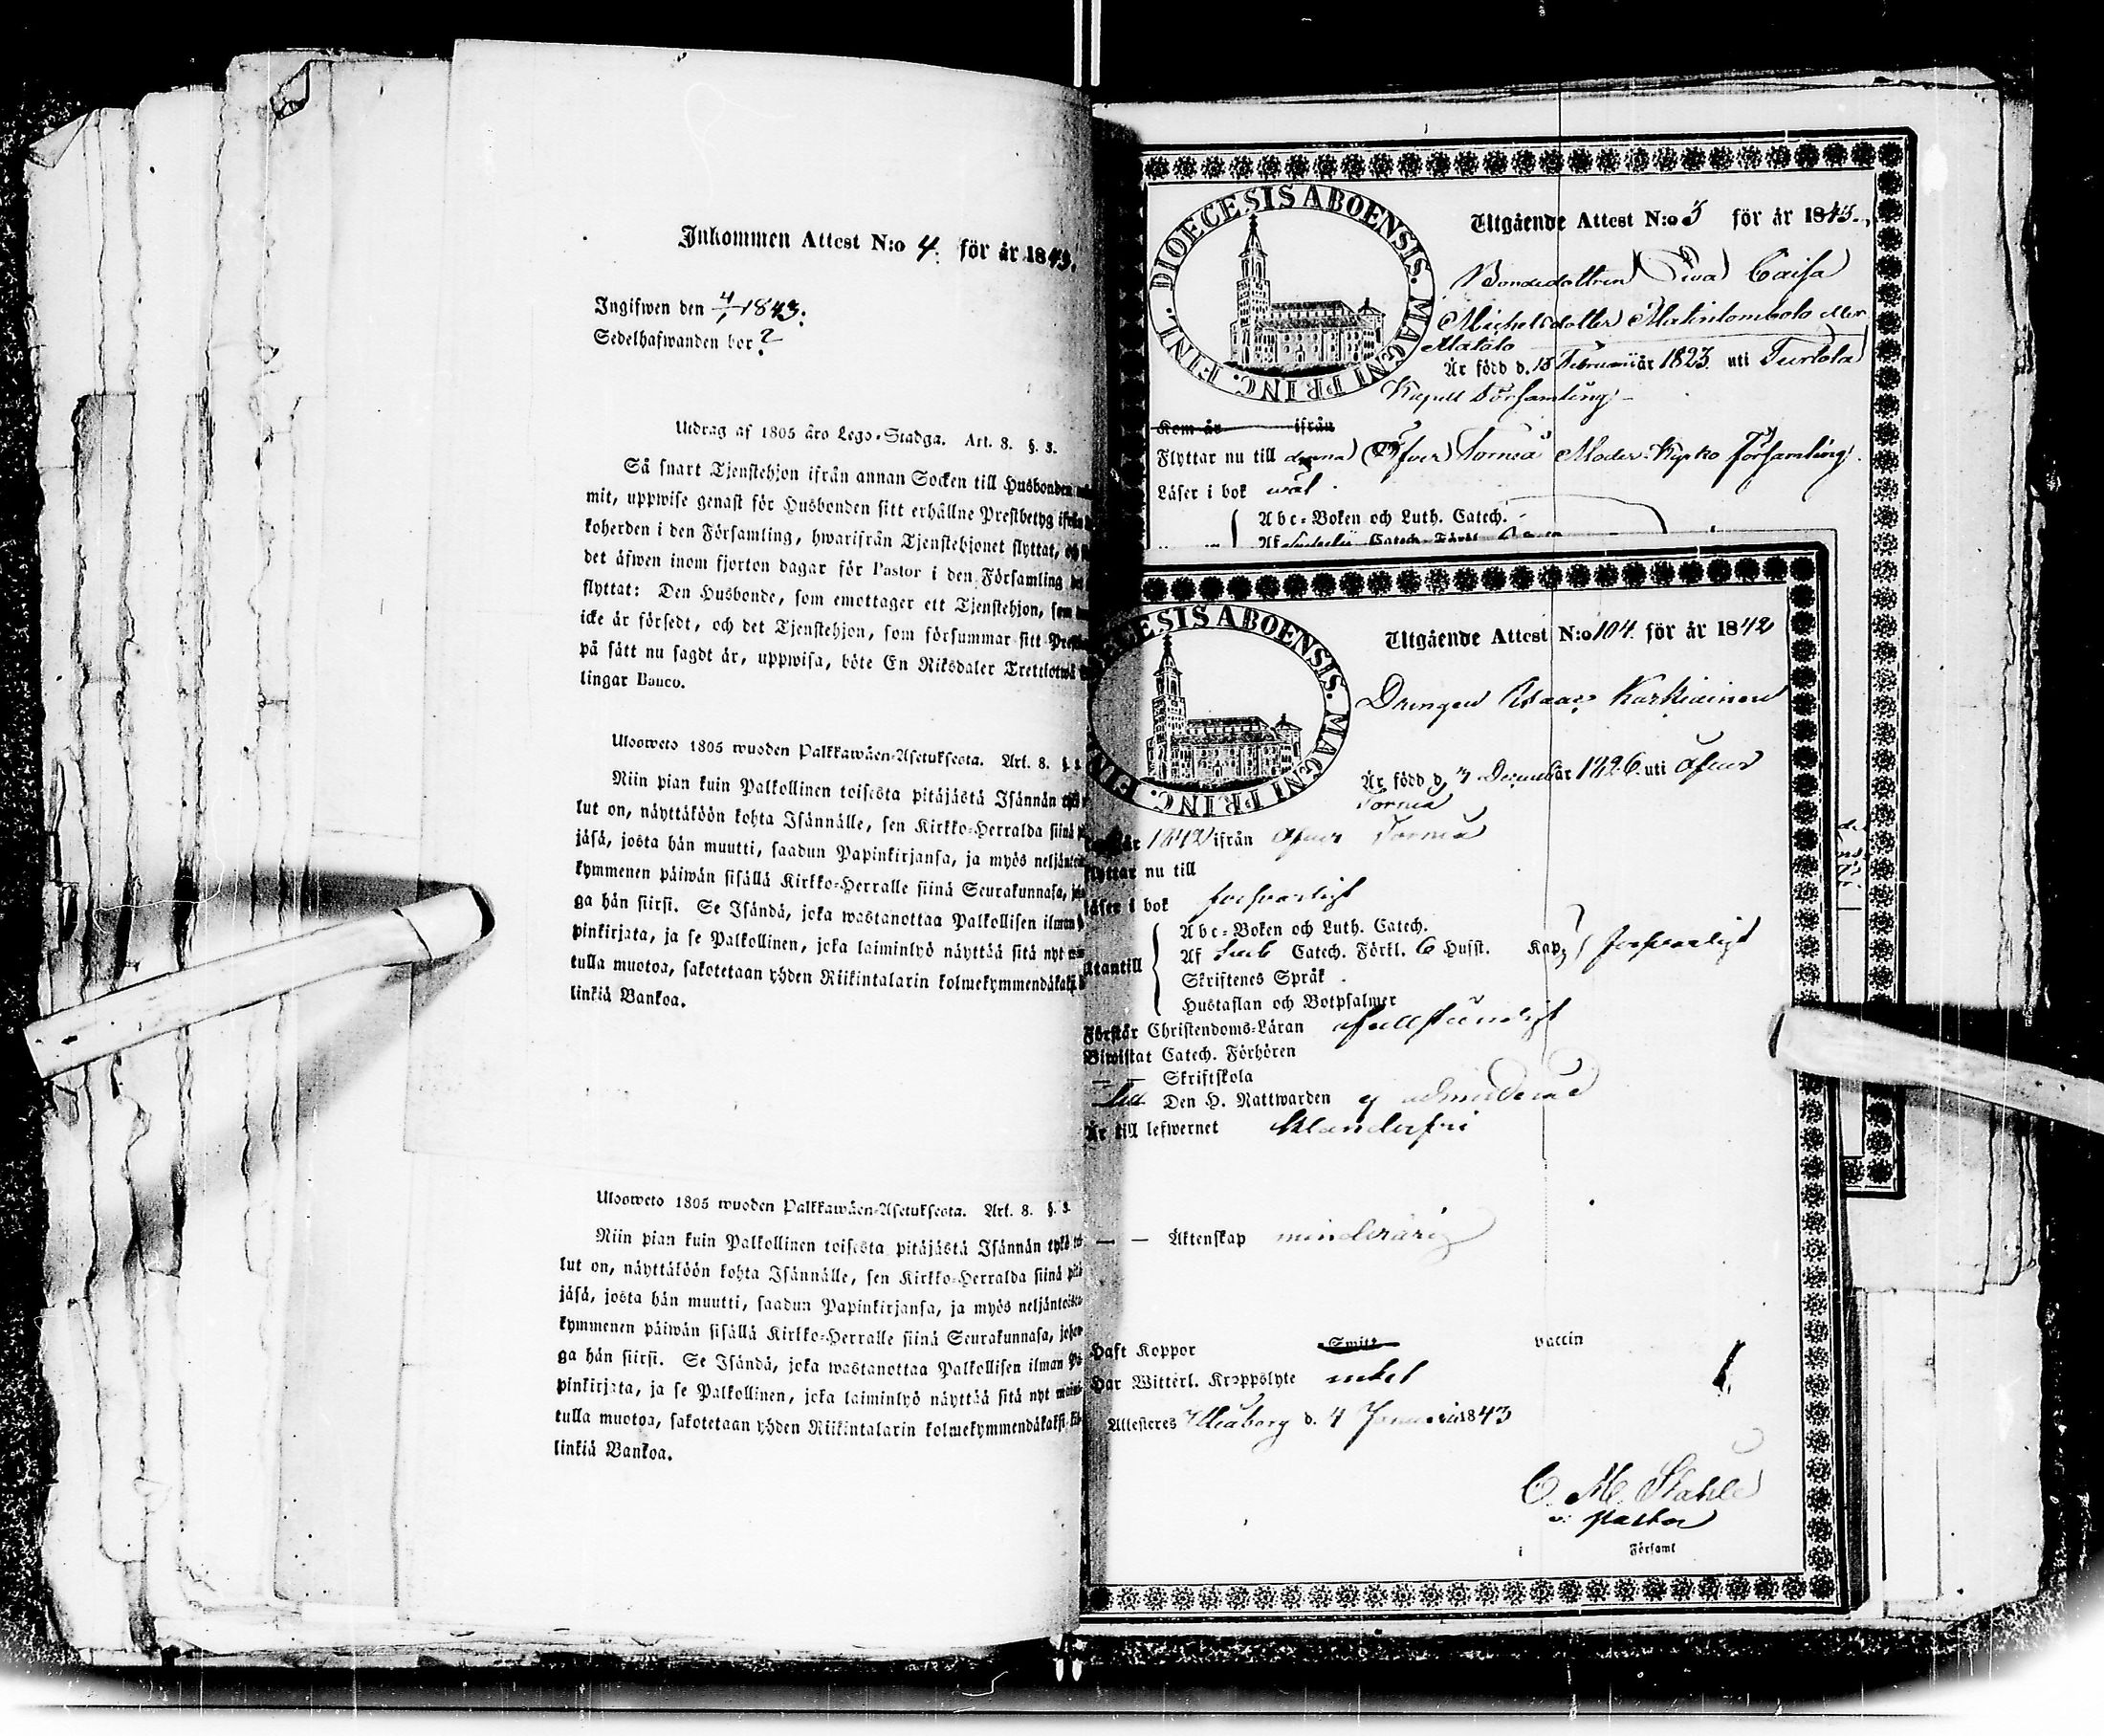 Inkommen Attest N:o 4. för år 1843.
Ingifwen den 4/1 1843.
Sedelhafwanden bor ?
Utdrag af 1805 års Lego-Stadga. Art. 8. §. 3.
Så snart Tjenstehjon ifrån annan Socken till Husbonden
mit, uppwise genast för Husbonden sitt erhållne Prestbetyg ifrån
koherden i den Församling, hwarifrån Tjenstehjonet flyttat,
det äfwen inom fjorton dagar för Pastor i den Församling
flyttat: Den Husbonde, som emottager ett Tjenstehjon, som
icke är försedt, och det Tjenstehjon, som försummar sitt
på sätt nu sagdt är, uppwisa, böte En Riksdaler Trettiotwå
lingar Banco.
Ulosweto 1805 wuoden Palkkawäen-Asetuksesta. Art. 8. §. 3.
Niin pian kuin Palkollinen toisesta pitäjästä Isännän tykö
lut on, näyttäköön kohta Isännälle, sen Kirkko-Herralda siinä
jäsä, josta hän muutti, saadun Papinkirjansa, ja myös neljäntoista
kymmenen päiwän sisällä Kirkko-Herralle siinä Seurakunnasa,
ga hän siirsi. Se Isändä, joka wastanottaa Palkollisen ilman
pinkirjata, ja se Palkollinen, joka laiminlyö näyttää sitä nyt
tulla muotoa, sakotetaan yhden Riikintalarin kolmekymmendäkaksi
linkiä Bankoa.
Ulosweto 1805 wuoden Palkkawäen-Asetuksesta. Art. 8. §. 3.
Niin pian kuin Palkollinen toisesta pitäjästä Isännän tykö
lut on, näyttäköön kohta Isännälle, sen Kirkko-Herralda siinä pitä
jäsä, josta hän muutti, saadun Papinkirjansa, ja myös neljäntoista
kymmenen päiwän sisällä Kirkko-Herralle siinä Seurakunnasa, johon
ga hän siirsi. Se Isändä, joka wastanottaa Palkollisen ilman Pa
pinkirjata, ja se Palkollinen, joka laiminlyö näyttää sitä nyt maini
tulla muotoa, sakotetaan yhden Riikintalarin kolmekymmendäkaksi
linkiä Bankoa.
DIOECESIS ABOENSIS. MAGNI PRINC. FINL.
Utgående Attest N:o 3 för år 1843.
Bondedottren Eva Caisa
Michelsdotter Matinlompolo eller
Matalo
Är född d. 15 Februari år 1823 uti Turtola
Kapell Församling
Kom år ifrån
Flyttar nu till denna Öfver Torneå Moder-Kyrko församling.
Läser i bok wäl.
Abc-Boken och Luth. Catech.
Af Catech. Förkl.
ECESIS ABOENSIS. MAGNI PRINC. FIN
Utgående Attest N:o 104. för år 1842
Drengen Isaac Karkiainen
Är född d. 7 December år 1826. uti Öfver
Torneå
år 1842 ifrån Öfver Torneå
Flyttar nu till
Läser i bok försvarligt
Abc-Boken och Luth. Catech.
Utantill Af Catech. Förkl. 6 Hufst. Kap. försvarligt
Skriftenes Språk
Hustaflan och Botpsalmer
Förstår Christendoms-Läran ofullständigt
Biwistat Catech. Förhören
Skriftskola
Den H. Nattwarden ej admitterad
Är till lefwernet klanderfri
— — Äktenskap minderårig
Haft Koppor Smitt vaccin
Har Witterl. Kroppslyte intet
Attesteres Uleåborg d. 4 Januarii 1843
C. M. Ståhle
v: Pastor
Församl